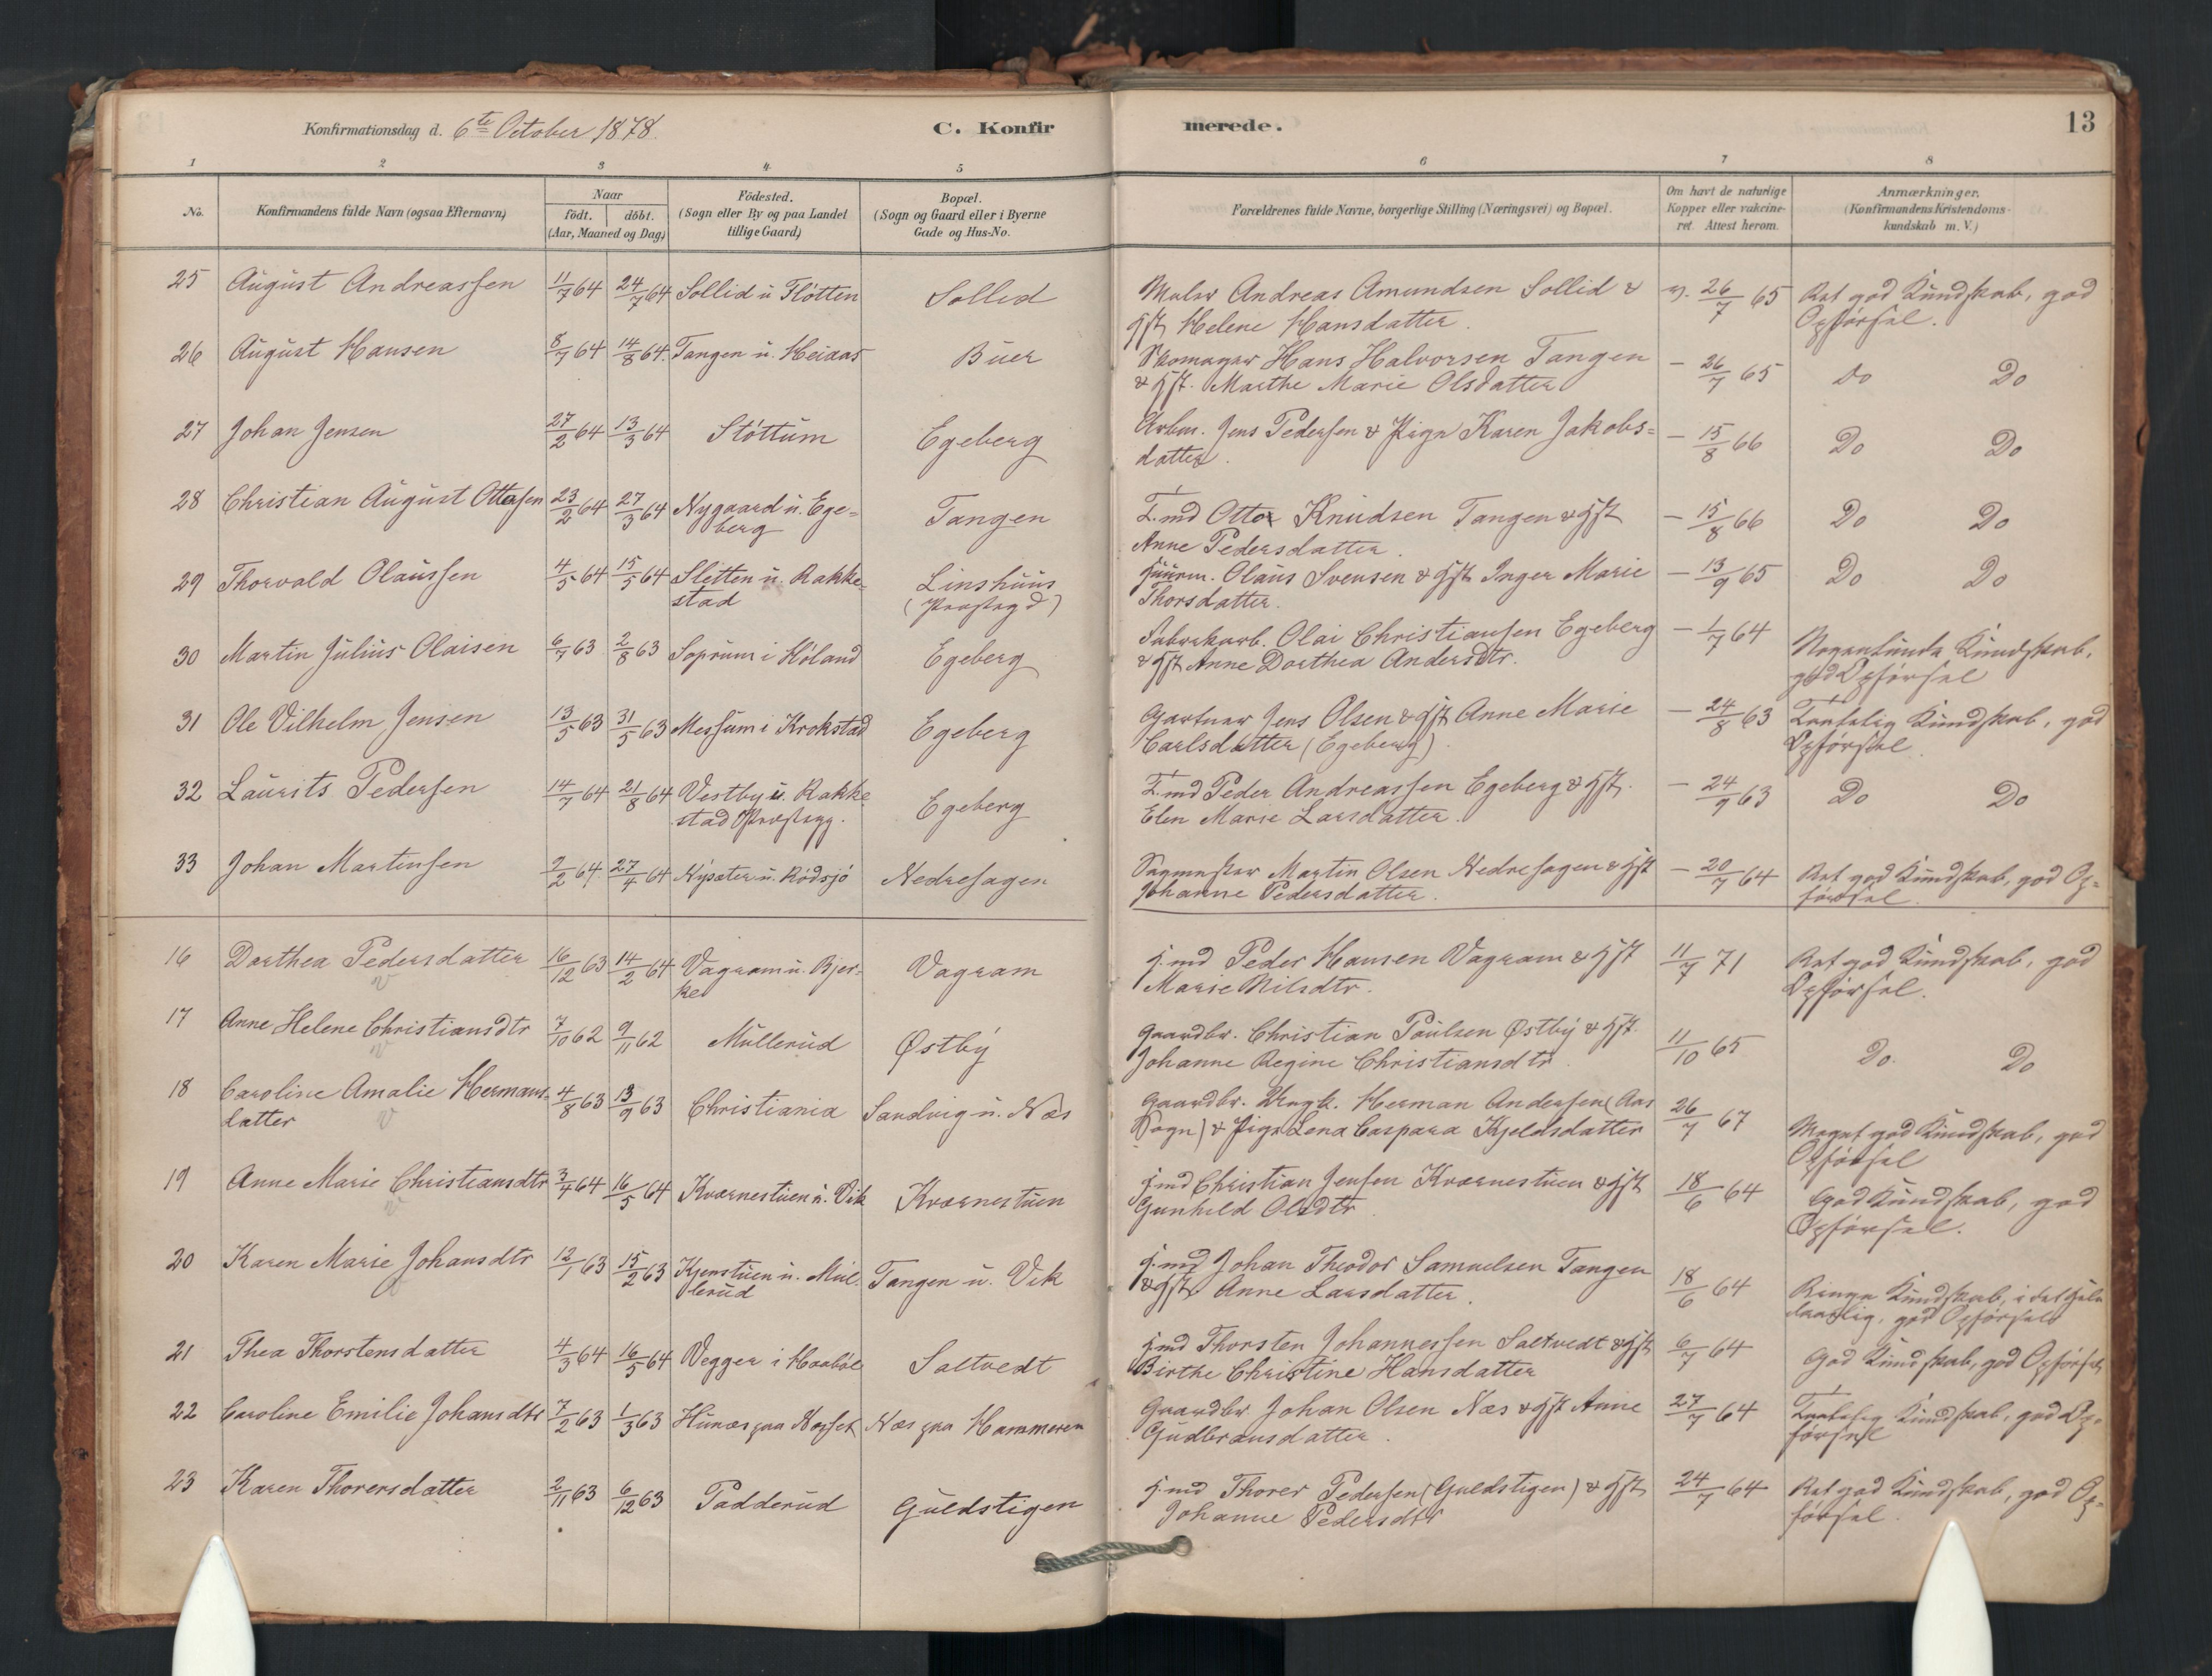 Konfirmationsdag d. 6te October 1878. C. Konfirmerede. 13
1 2 3 4 5 6 7 8
No. Konfirmandens fulde Navn (ogsaa Efternavn) Naar födt. döbt. (Aar, Maaned og Dag) Födested. (Sogn eller By og paa Landet tillige Gaard) Bopæl. (Sogn og Gaard eller i Byerne Gade og Hus-No. Forældrenes fulde Navne, borgerlige Stilling (Næringsvei) og Bopæl. Om havt de naturlige Kopper eller vakcineret. Attest herom. Anmærkninger. (Konfirmandens Kristendomskundskab m. V.)
25 August Andreassen 11/7 64 24/7 64 Sollid u Fløtten Sollid Maler Andreas Amundsen Sollid & v. 26/7 65 Ret god Kundskab, god
Hst. Helene Hansdatter. Opførsel.
26 August Hansen 8/7 64 14/8 64. Tangen u. Heiaas Buer Skomager Hans Halvorsen Tangen — 26/7 65 Do Do
& Hst. Marthe Marie Olsdatter
27 Johan Jensen 27/2 64 13/3 64 Støttum Egeberg Arbm. Jens Pedersen & Pige Karen Jakobs= — 15/8 66 Do Do
datter.
28 Christian August Ottesen 23/2 64 27/3 64 Nygaard u. Ege= Tangen F.md Otto Knudsen Tangen & Hst — 15/8 66 Do Do
berg Anne Pedersdatter.
29 Thorvald Olaussen 4/5 64 15/5 64 Sletten u. Rakke= Linshuus Huusm. Olaus Svensen & Hst Inger Marie — 13/9 65 Do Do
stad (Præstegd) Thorsdatter.
30 Martin Julius Olaisen 6/7 63 2/8 63 Soprum i Høland Egeberg Fabrikarb. Olai Christiansen Egeberg — 1/7 64 Nogenlunde Kundskab,
& Hst Anne Dorthea Andersdtr. god Opførsel
31 Ole Vilhelm Jensen 13/5 63 31/5 63 Messum i Krokstad Egeberg Gartner Jens Olsen & Hst Anne Marie — 24/8 63 Taalelig Kundskab, god
Carlsdatter (Egeberg). Opførsel.
32 Laurits Pedersen 14/7 64 21/8 64 Vestby u. Rakke Egeberg F.md Peder Andreassen Egeberg & Hst. — 24/9 63 Do Do
stad Præstegj. Elen Marie Larsdatter.
33 Johan Martinsen 9/2 64 27/4 64 Nysæter u. Rødsjø Nedresagen Sagmester Martin Olsen Nedresagen & Hst — 20/7 64 Ret god Kundskab, god Op=
Johanne Pedersdatter. førsel.
16 Dorthea Pedersdatter 16/12 63 14/2 64 Vagram u. Bjer= Vagram H.md Peder Hansen Vagram & Hst 11/7 71 Ret god Kundskab, god
v ke Marie Nilsdtr. Opførsel.
17 Anne Helene Christiansdtr 7/10 62 9/11 62 Müllerud Østby Gaardbr. Christian Paulsen Østby & Hst. 11/10 65 Do. Do
v Johanne Regine Christiansdtr.
18 Caroline Amalie Hermans= 4/8 63 13/9 63 Christiania Sandvig u. Næs Gaardbr. Ungk. Herman Andersen (Aas 26/7 67 Meget god Kundskab, god
datter v Sogn) & Pige Lena Caspara Kjeldsdatter Opførsel
19 Anne Marie Christiansdtr 3/4 64 16/5 64 Kværnestuen u. Vik Kværnestuen H.md Christian Jensen Kværnestuen & Hst 18/6 64 God Kundskab, god
v Gunhild Olsdtr. Opførsel.
20 Karen Marie Johansdtr 12/1 63 15/2 63 Kjenstuen u. Mül= Tangen u. Vik H.md Johan Theodor Samuelsen Tangen 18/6 64 Ringe Kundskab, i det Hele
v lerud & Hst Anne Larsdatter. daarlig, god Opførsel
21 Thea Thorstensdatter 4/3 64 16/5 64 Vegger i Haabøl Saltvedt H.md Thorsten Johannessen Saltvedt & Hst 6/7 64 God Kundskab, god Opførsel,
Birthe Christine Hansdatter
22 Caroline Emilie Johansdtr 7/2 63 1/3 63 Hunæs paa Næsset Næs paa Hammeren Gaardbr Johan Olsen Næs & Hst Anne 27/7 64 Taalelig Kundskab, god Op=
Gudbransdatter. førsel
23 Karen Thorersdatter 2/11 63 6/12 63 Padderud Guldstigen H.md Thorer Pedersen (Guldstigen) & Hst 24/7 64 Ret god Kundskab, god Op=
Johanne Pedersdtr førsel.